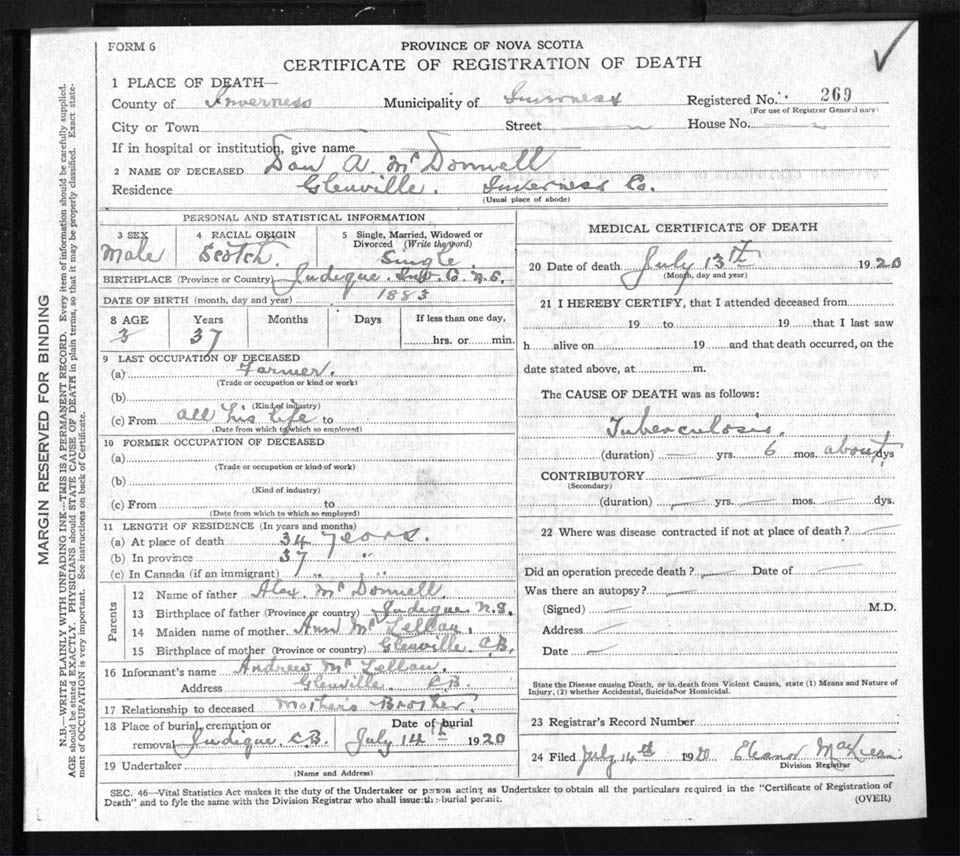 FORM 6
PROVINCE OF NOVA SCOTIA
CERTIFICATE OF REGISTRATION OF DEATH
1 PLACE OF DEATH—
County of Inverness Municipality of Inverness Registered No. 269
(For use of Registrar General only)
City or Town Street House No.
If in hospital or institution, give name
2 NAME OF DECEASED Dan A. McDonnell
Residence Glenville. Inverness Co.
(Usual place of abode)
PERSONAL AND STATISTICAL INFORMATION
3 SEX 4 RACIAL ORIGIN 5 Single, Married, Widowed or Divorced (Write the word)
Male Scotch. Single
BIRTHPLACE (Province or Country) Judique. Inv. C. N.S.
DATE OF BIRTH (month, day and year) 1883
8 AGE Years Months Days If less than one day,
3 37 hrs. or min.
9 LAST OCCUPATION OF DECEASED
(a) Farmer.
(Trade or occupation or kind of work)
(b)
(Kind of industry)
(c) From all his life to
(Date from which to which so employed)
10 FORMER OCCUPATION OF DECEASED
(a)
(Trade or occupation or kind of work)
(b)
(Kind of industry)
(c) From to
(Date from which to which so employed)
11 LENGTH OF RESIDENCE (In years and months)
(a) At place of death 34 years.
(b) In province 37 "
(c) In Canada (if an immigrant) " "
Parents
12 Name of father Alex. McDonnell
13 Birthplace of father (Province or country) Judique N.S.
14 Maiden name of mother Ann McLellan.
15 Birthplace of mother (Province or country) Glenville C.B.
16 Informant's name Andrew McLellan.
Address Glenville. C.B.
17 Relationship to deceased Mothers Brother.
18 Place of burial, cremation or removal Judique C.B. Date of burial July 14th 1920
19 Undertaker
(Name and Address)
MEDICAL CERTIFICATE OF DEATH
20 Date of death July 13th 1920
(Month, day and year)
21 I HEREBY CERTIFY, that I attended deceased from
19 to 19 that I last saw
h alive on 19 and that death occurred, on the
date stated above, at m.
The CAUSE OF DEATH was as follows:
Tuberculosis.
(duration) — yrs. 6 mos. about dys
CONTRIBUTORY
(Secondary)
(duration) yrs. mos. dys.
22 Where was disease contracted if not at place of death?
Did an operation precede death? Date of
Was there an autopsy?
(Signed) M.D.
Address
Date
State the Disease causing Death, or in death from Violent Causes, state (1) Means and Nature of
Injury, (2) whether Accidental, Suicidal or Homicidal.
23 Registrar's Record Number
24 Filed July 14th 1920 Eleanor MacLean
Division Registrar
SEC. 46—Vital Statistics Act makes it the duty of the Undertaker or person acting as Undertaker to obtain all the particulars required in the "Certificate of Registration of
Death" and to fyle the same with the Division Registrar who shall issue the burial permit. (OVER)
MARGIN RESERVED FOR BINDING
N.B.—WRITE PLAINLY WITH UNFADING INK—THIS IS A PERMANENT RECORD. Every item of information should be carefully supplied.
AGE should be stated EXACTLY. PHYSICIANS should STATE CAUSE OF DEATH in plain terms, so that it may be properly classified. Exact statement
of OCCUPATION is very important. See instructions on back of Certificate.